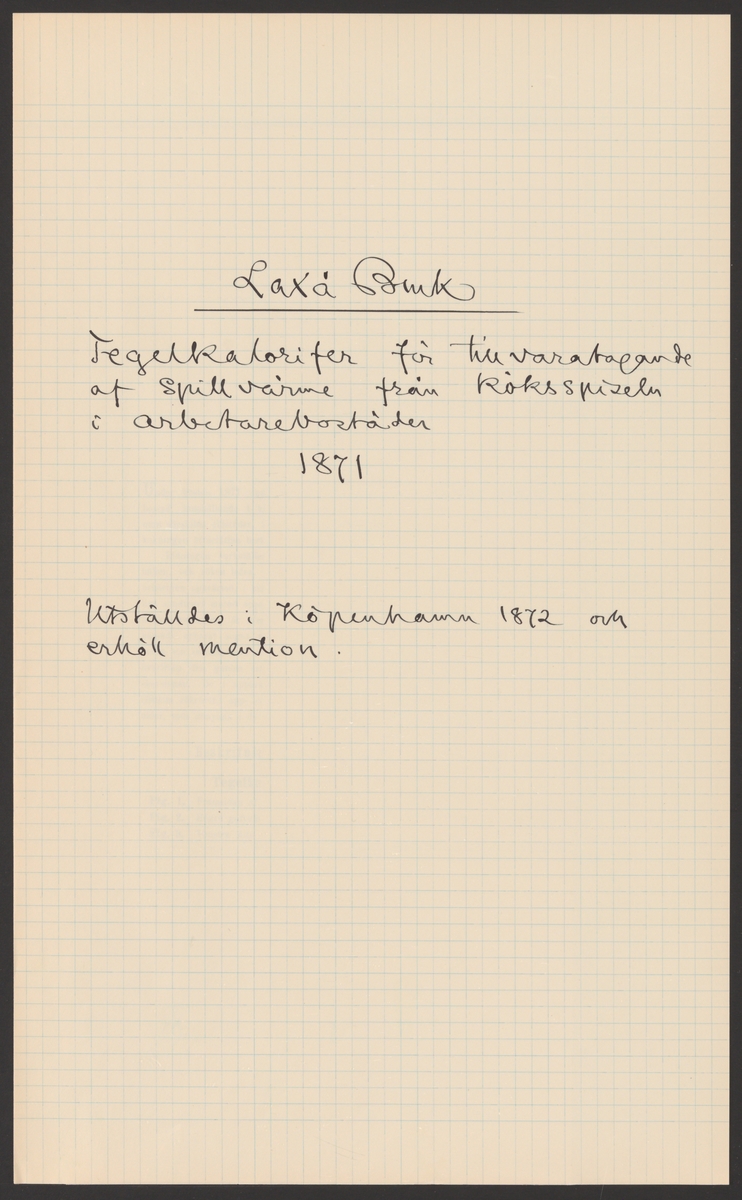 Laxå Bruk
Tegelkalorifer för tillvaratagande
af spillvärme från köksspiseln
i arbetarebostäder
1871
Utställdes i Köpenhamn 1872 och
erhöll mention.